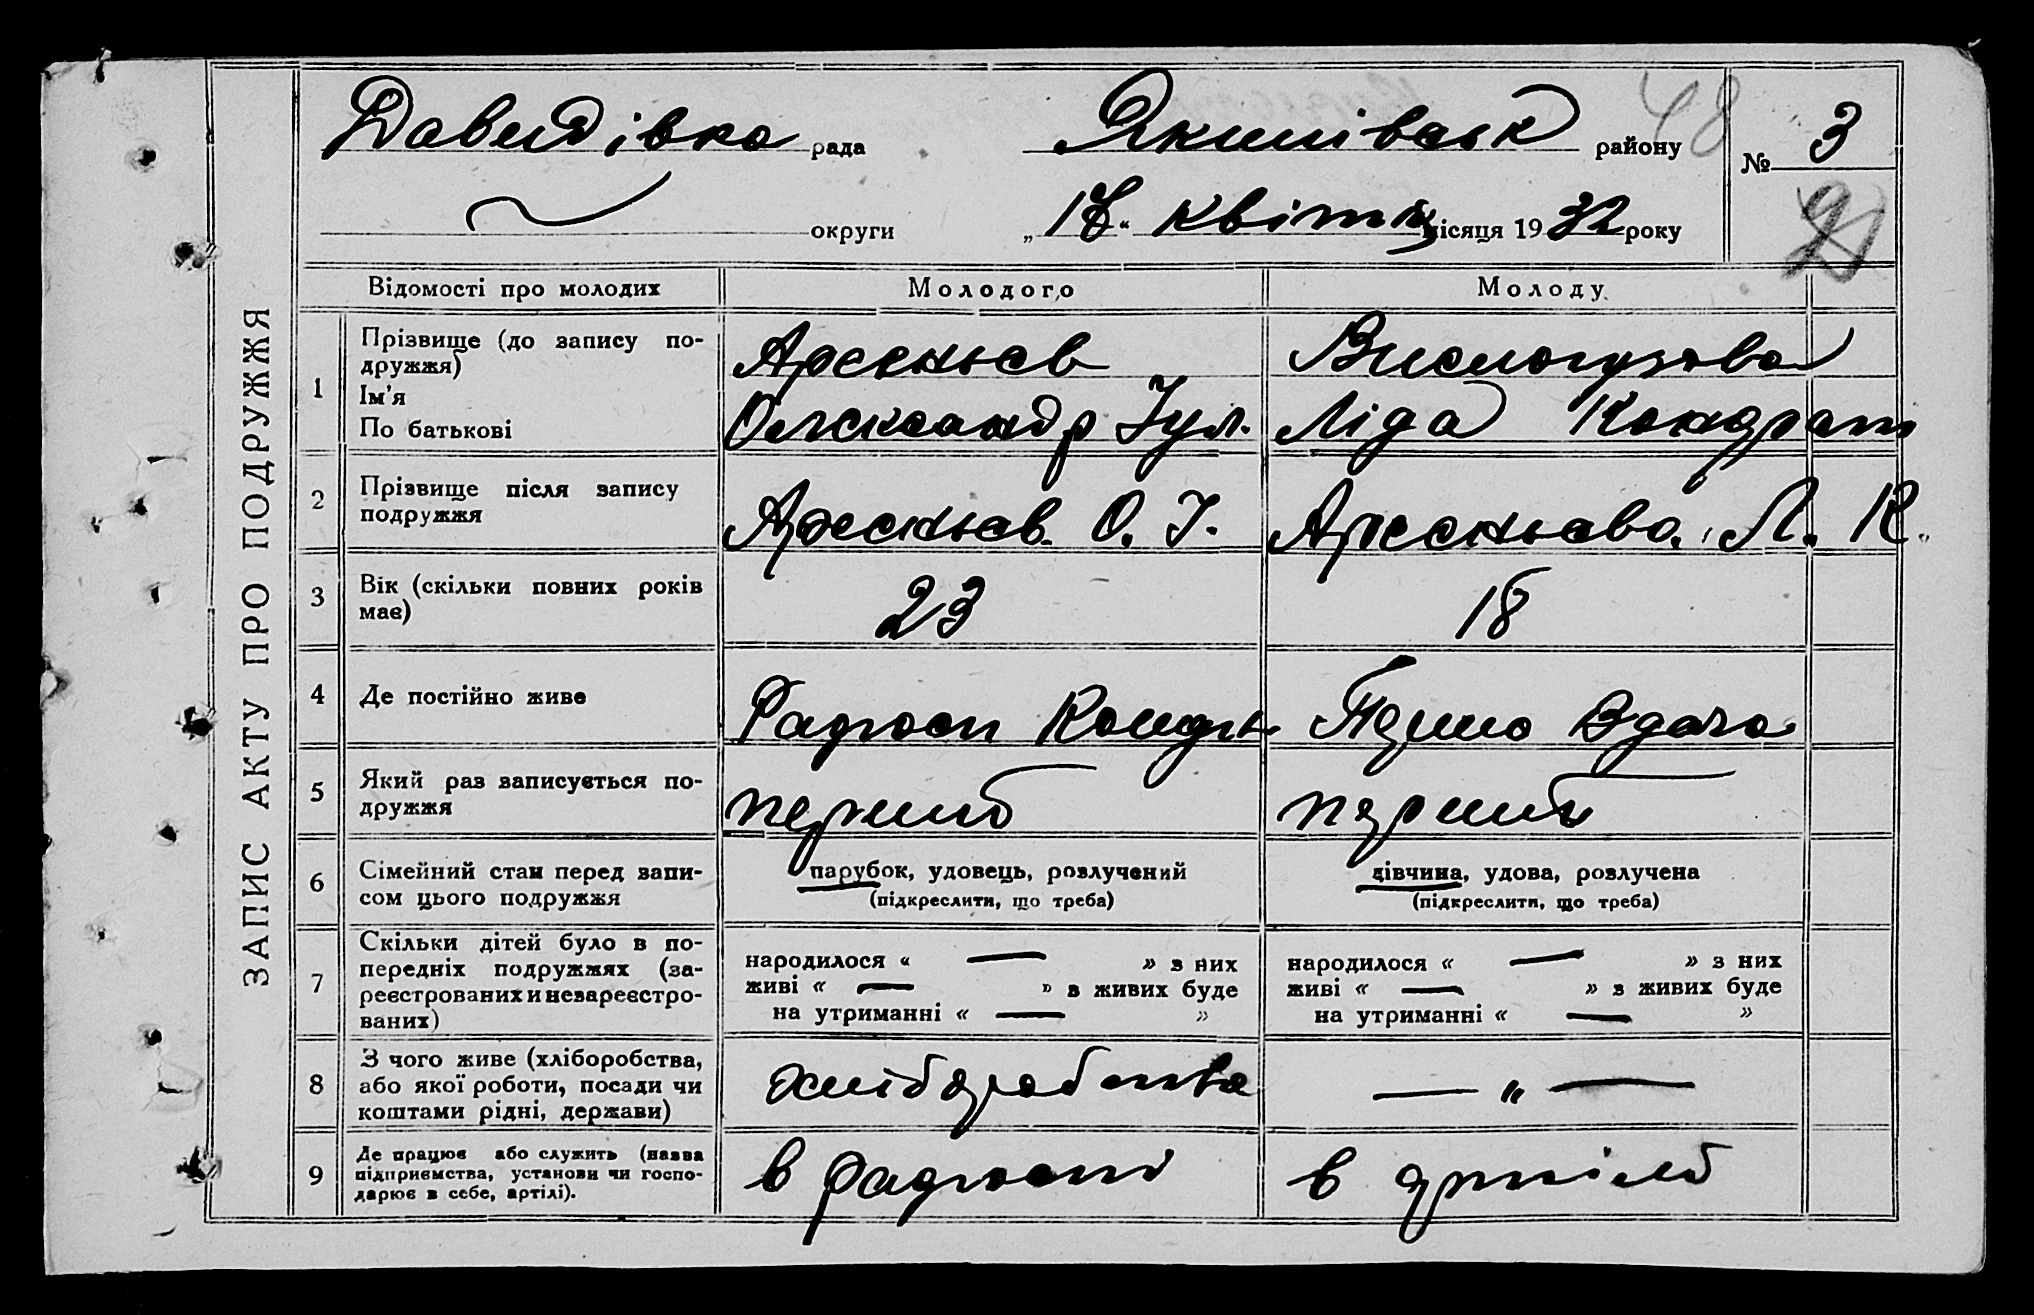 ЗАПИС АКТУ ПРО ПОДРУЖЖЯ
Давидівка рада Якимівськ району 48 № 3
округи „18“ квітня місяця 1932 року
Відомості про молодих Молодого Молоду
1 Прізвище (до запису по-
дружжя)
Ім'я
По батькові
Арсеньєв
Олександр Іул.
Вислогузова
Ліда Кондрат
2 Прізвище після запису
подружжя
Арсеньєв О. І.
Арсеньєва Л. К.
3 Вік (скільки повних років
має)
23
18
4 Де постійно живе
Радгосп
5 Який раз записується по-
дружжя
перший
перший
6 Сімейний стан перед запи-
сом цього подружжя
парубок, удовець, розлучений
(підкреслити, що треба)
дівчина, удова, розлучена
(підкреслити, що треба)
7 Скільки дітей було в по-
передніх подружжях (за-
реєстрованих и незареєстро-
ваних)
народилося « — » з них
живі « — » з живих буде
на утриманні « — »
народилося « — » з них
живі « — » з живих буде
на утриманні « — »
8 З чого живе (хліборобства,
або якої роботи, посади чи
коштами рідні, держави)
хліборобства
— „ —
9 Де працює або служить (назва
підприємства, установи чи госпо-
дарює в себе, артілі).
в радгоспі
в артілі